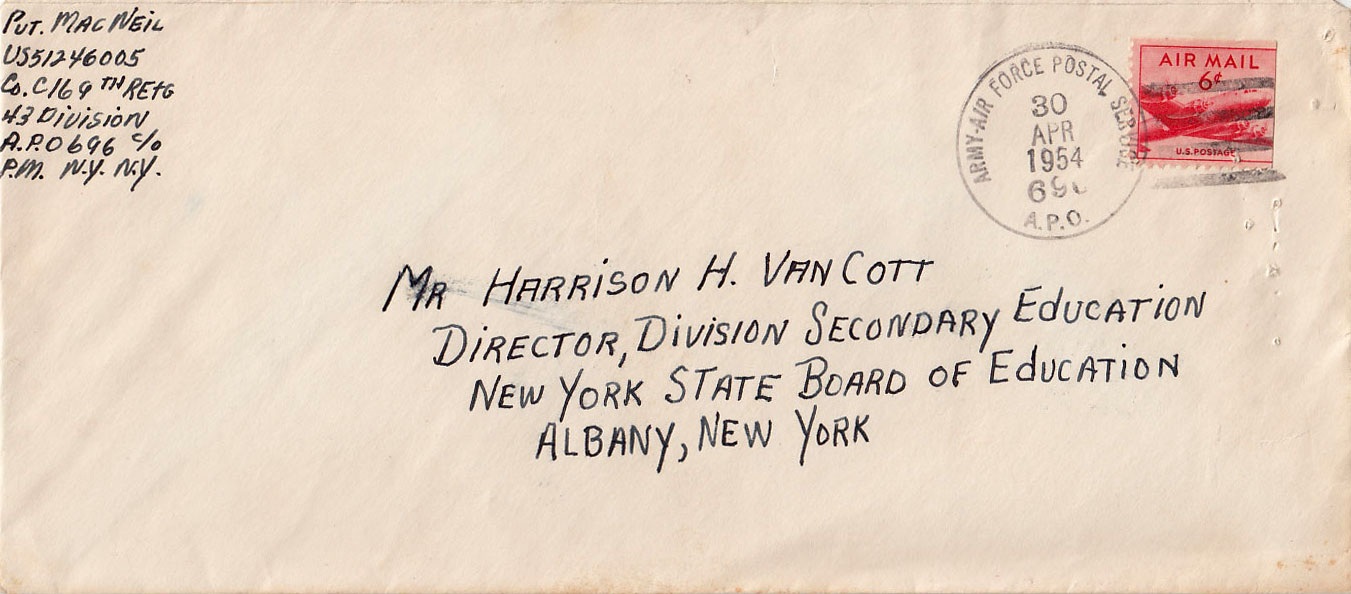 PVT. MAC NEIL
US51246005
Co. C 169 TH REtG
43 Division
A.P.O 696 c/o
P.M. N.Y. N.Y.
ARMY-AIR FORCE POSTAL SERVICE
30
APR
1954
69
A.P.O.
AIR MAIL
6¢
U.S. POSTAGE
MR HARRISON H. VAN COTT
DIRECTOR, DIVISION SECONDARY EDUCATION
NEW YORK STATE BOARD OF EDUCATION
ALBANY, NEW YORK